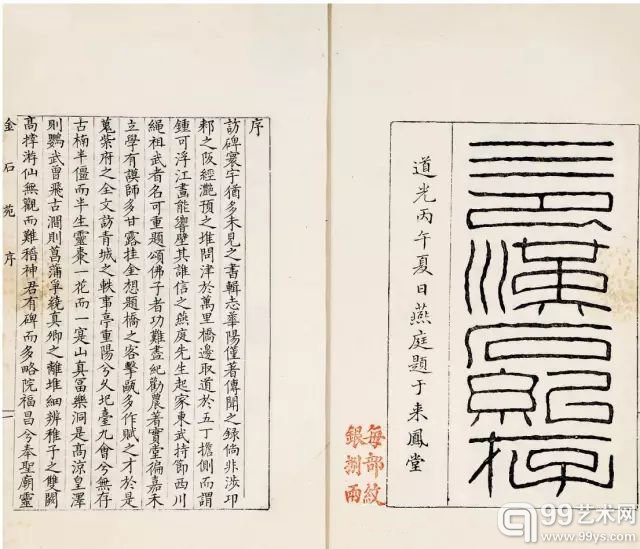 三巴漢石紀存
道光丙午夏日燕庭題于来鳳堂
每部紋
銀捌兩
序
訪碑寰宇猶多未見之書輯志華陽僅著傳聞之録倘非涉邛
郲之阪經灔預之堆問津於萬里橋邊取道於五丁擔側而謂
鍾可浮江畫能響壁其誰信之燕庭先生起家東武持節西川
繩祖武者名可重題頌佛子者功難盡紀勸農著實堂徧嘉禾
立學有謨師多甘露挂金想題橋之客擊甌多作賦之才於是
蒐紫府之全文訪青城之軼事亭重陽兮久圯臺九會兮無存
古楠半僵而半生靈棗一花而一寔山真冨樂洞是高涼皇澤
則鸚武曾飛古澗則菖蒲爭繞真卿之離堆細辨稚子之雙闕
高撑游仙無觀而難稽神君有碑而多略院福昌兮奉聖廟靈
金石苑 序 一
99艺术网
www.99ys.com